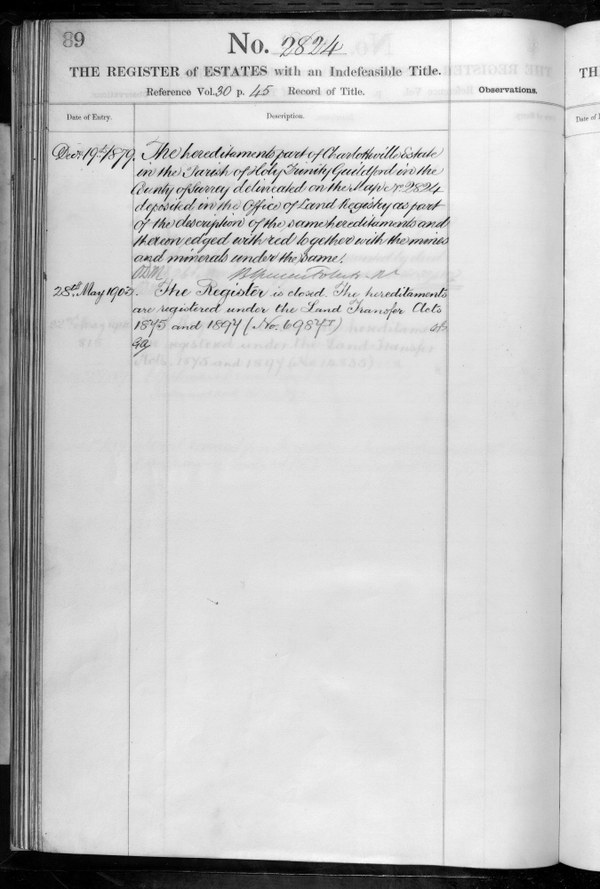 89
No. 2824
THE REGISTER of ESTATES with an Indefeasible Title.
Reference Vol. 30 p. 45 Record of Title.
Observations.
Date of Entry.
Description.
Decr. 19th 1879.
The hereditaments part of Charlotteville Estate
in the Parish of Holy Trinity Guildford in the
County of Surrey delineated on the Map No. 2824
deposited in the Office of Land Registry as part
of the description of the same hereditaments and
thereon edged with red together with the mines
and minerals under the same.
28th May 1903.
The Register is closed. The hereditaments
are registered under the Land Transfer Acts
1875 and 1897 (No. 69877)
TH
Date of